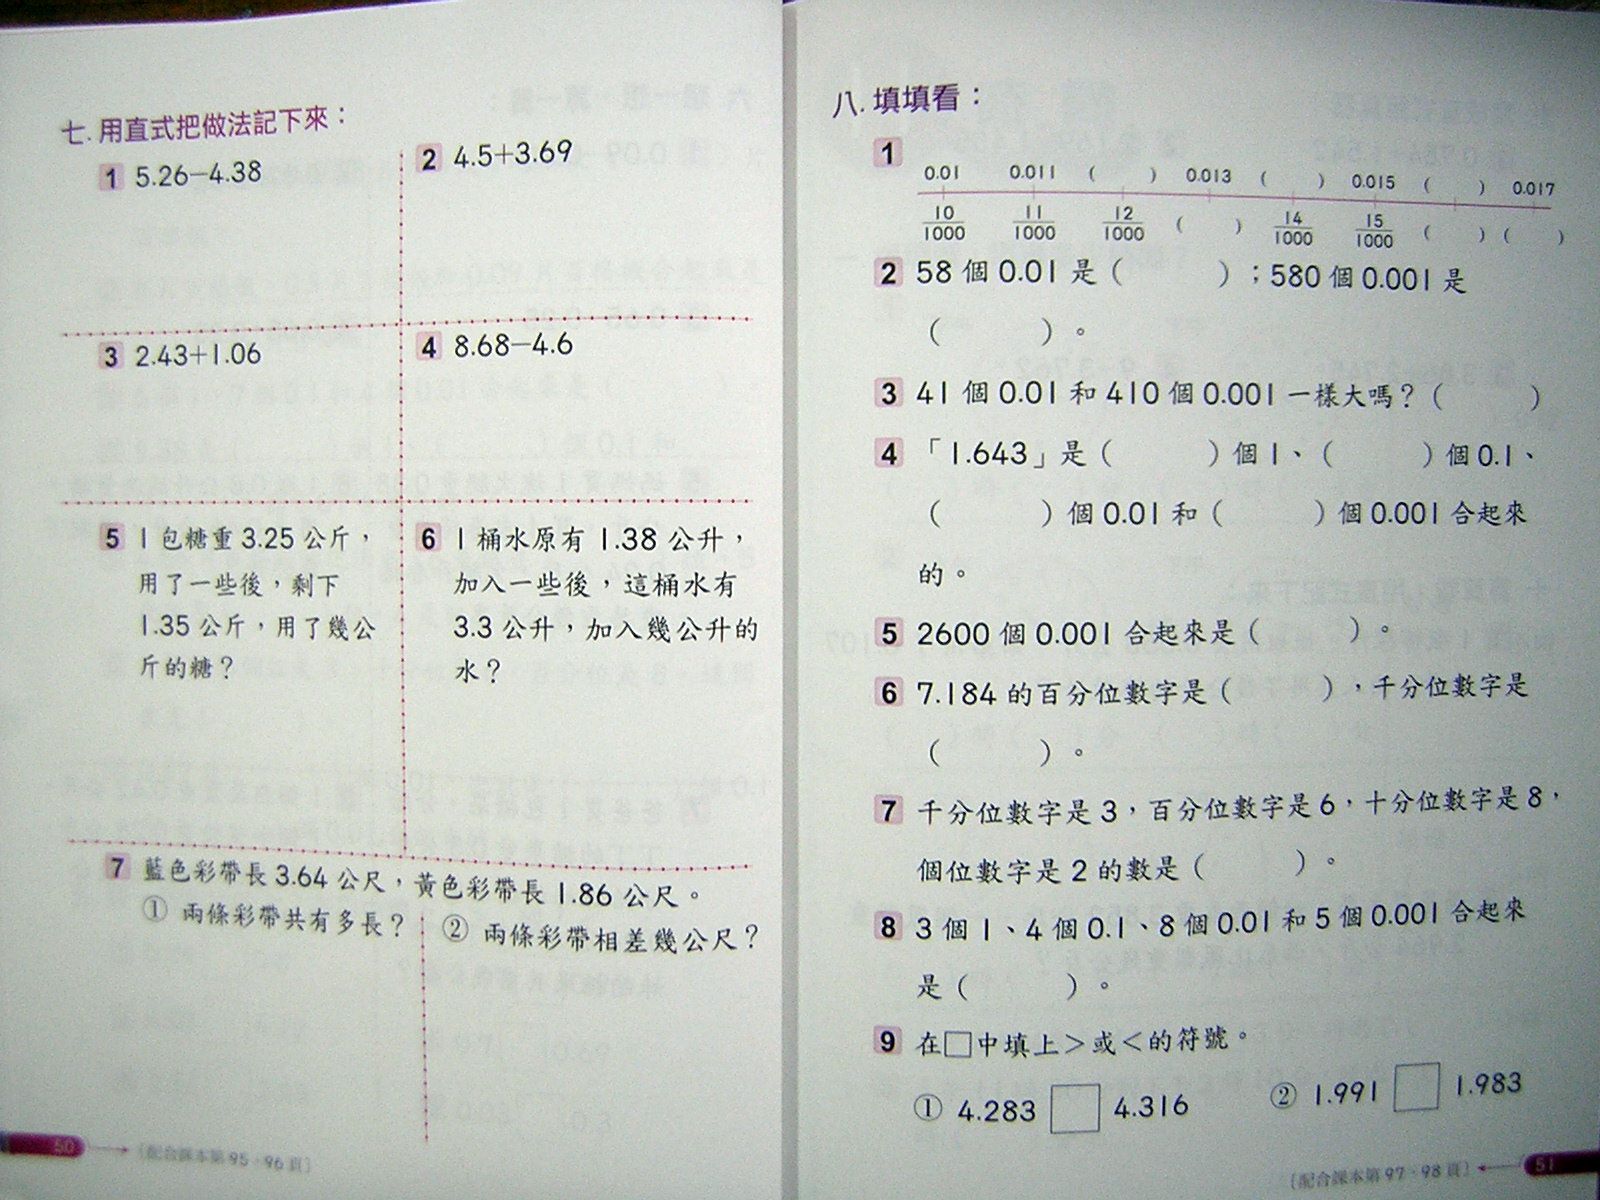 七. 用直式把做法記下來：
1 5.26−4.38
2 4.5+3.69
3 2.43+1.06
4 8.68−4.6
5 1包糖重3.25公斤，
用了一些後，剩下
1.35公斤，用了幾公
斤的糖？
6 1桶水原有1.38公升，
加入一些後，這桶水有
3.3公升，加入幾公升的
水？
7 藍色彩帶長3.64公尺，黃色彩帶長1.86公尺。
① 兩條彩帶共有多長？
② 兩條彩帶相差幾公尺？
50
〔配合課本第95、96頁〕
八. 填填看：
1
0.01 0.011 （ ） 0.013 （ ） 0.015 （ ） 0.017
10/1000 11/1000 12/1000 （ ） 14/1000 15/1000 （ ）（ ）
2 58個0.01是（ ）；580個0.001是
（ ）。
3 41個0.01和410個0.001一樣大嗎？（ ）
4 「1.643」是（ ）個1、（ ）個0.1、
（ ）個0.01和（ ）個0.001合起來
的。
5 2600個0.001合起來是（ ）。
6 7.184的百分位數字是（ ），千分位數字是
（ ）。
7 千分位數字是3，百分位數字是6，十分位數字是8，
個位數字是2的數是（ ）。
8 3個1、4個0.1、8個0.01和5個0.001合起來
是（ ）。
9 在□中填上＞或＜的符號。
① 4.283 □ 4.316
② 1.991 □ 1.983
〔配合課本第97、98頁〕
51